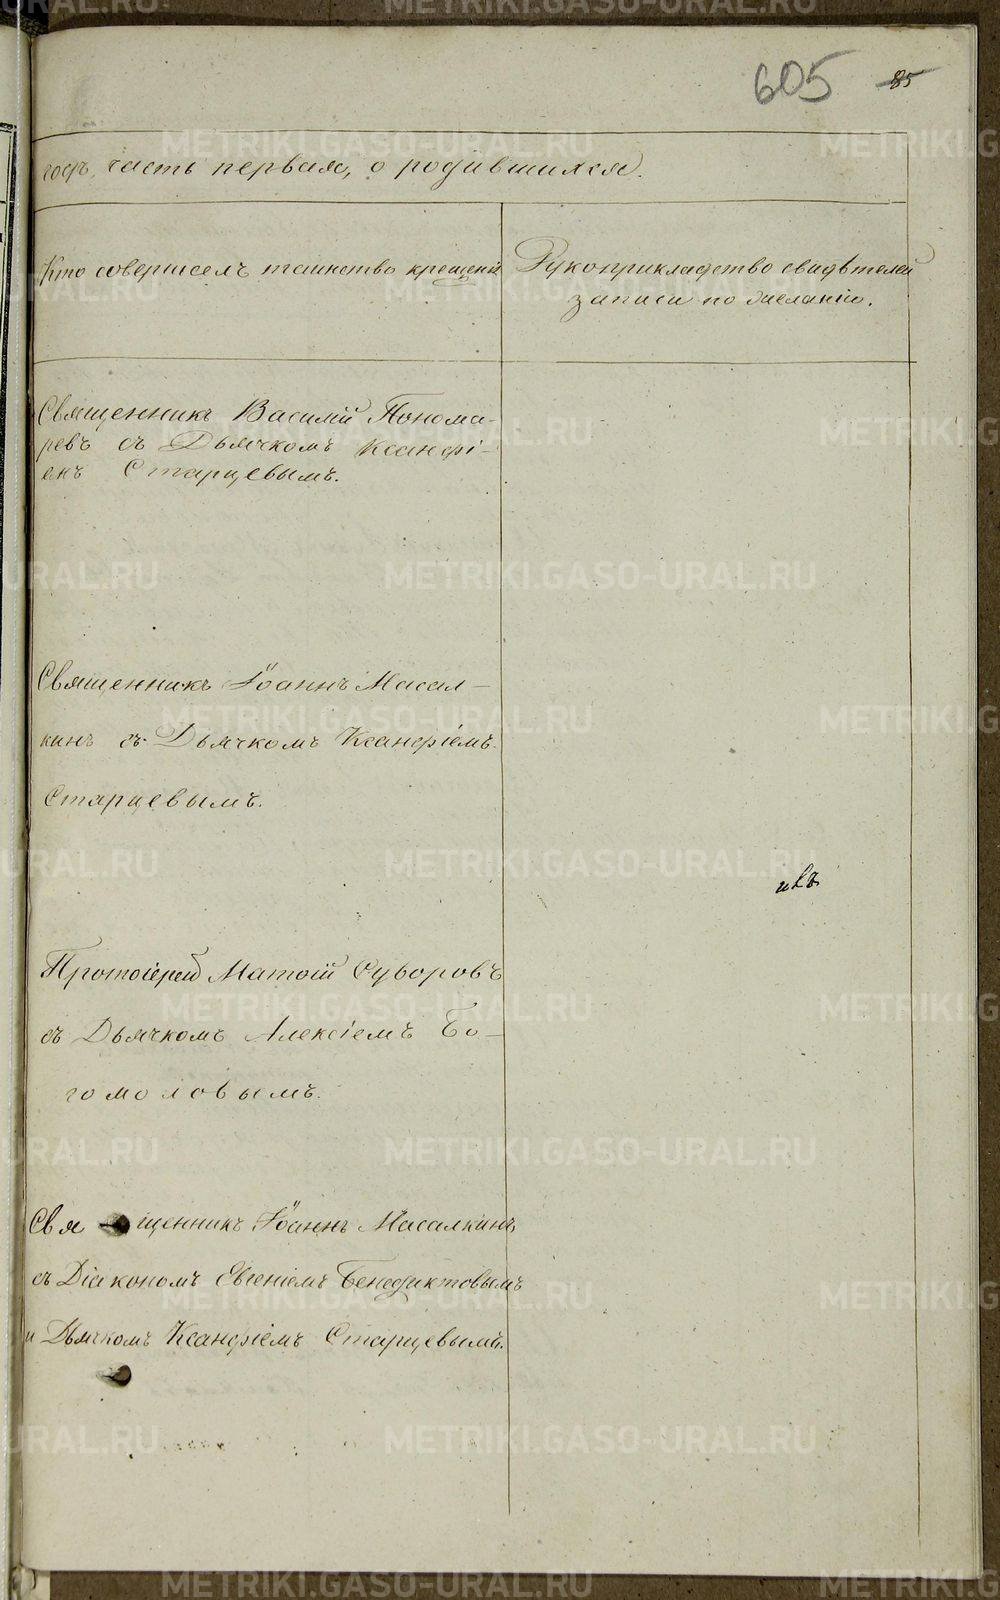 605 85
годъ, часть первая, о родившихся.
Кто совершилъ таинство крещенія
Рукоприкладство свидѣтелей
записи по желанію.
Священникъ Василій Понома-
ревъ съ Дьячкомъ Ксанфі-
емъ Старцевымъ.
Священникъ Іоаннъ Масал-
кинъ съ Дьячкомъ Ксанфіемъ
Старцевымъ.
Протоіерей Матѳій Суворовъ
съ Дьячкомъ Алексіемъ Бо-
гомоловымъ.
Священникъ Іоаннъ Масалкинъ
съ Діакономъ Евгеніемъ Бенедиктовымъ
и Дьячкомъ Ксанфіемъ Старцевымъ.
METRIKI.GASO-URAL.RU